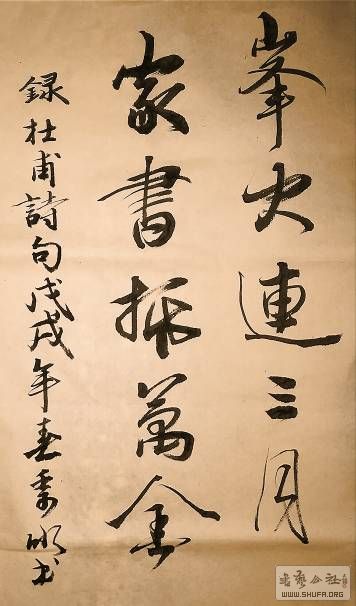 峯火連三月
家書抵萬金
録杜甫詩句戊戌年春明书
书艺公社
WWW.SHUFA.ORG